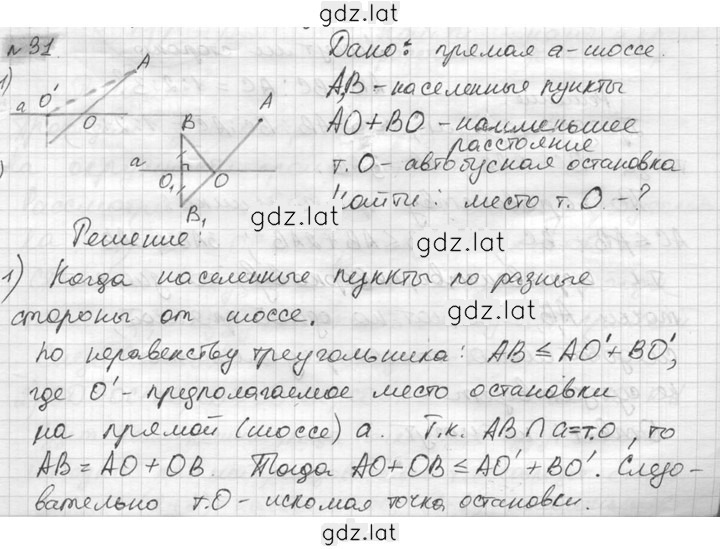 gdz.lat
№ 31. Дано: прямая а-шоссе.
1) A
a O' O
А,В - населенные пункты
A
B
АО+ВО - наименьшее
расстояние
a O₁ O
B₁
т. О - автобусная остановка
gdz.lat
Найти: место т. О. - ?
gdz.lat
Решение:
1) Когда населенные пункты по разные
стороны от шоссе.
gdz.lat
По неравенству треугольника: AB ≤ AO' + BO',
где О' - предполагаемое место остановки
на прямой (шоссе) а. Т.к. AB ∩ a = т.О, то
AB = AO + OB. Тогда AO + OB ≤ AO' + BO'. Следо-
вательно т.О - искомая точка остановки.
gdz.lat